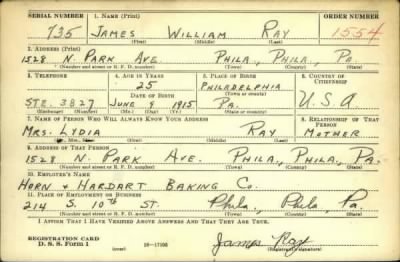 SERIAL NUMBER 1. NAME (Print) ORDER NUMBER
735 JAMES WILLIAM RAY 1554
(First) (Middle) (Last)
2. ADDRESS (Print)
1528 N. PARK AVE PHILA., PHILA, PA
(Number and street or R. F. D. number) (Town) (County) (State)
3. TELEPHONE 4. AGE IN YEARS 5. PLACE OF BIRTH 6. COUNTRY OF CITIZENSHIP
25 PHILADELPHIA
DATE OF BIRTH (Town or county)
STE. 3827 JUNE 9 1915 PA. U.S.A
(Exchange) (Number) (Mo.) (Day) (Yr.) (State or country)
7. NAME OF PERSON WHO WILL ALWAYS KNOW YOUR ADDRESS 8. RELATIONSHIP OF THAT PERSON
MRS. LYDIA RAY MOTHER
(Mr., Mrs., Miss) (First) (Middle) (Last)
9. ADDRESS OF THAT PERSON
1528 N. PARK AVE. PHILA., PHILA., PA.
(Number and street or R. F. D. number) (Town) (County) (State)
10. EMPLOYER'S NAME
HORN & HARDART BAKING CO.
11. PLACE OF EMPLOYMENT OR BUSINESS
214 S. 10TH ST. Phila., Phila, Pa.
(Number and street or R. F. D. number) (Town) (County) (State)
I AFFIRM THAT I HAVE VERIFIED ABOVE ANSWERS AND THAT THEY ARE TRUE.
REGISTRATION CARD
D. S. S. Form 1 (over) 16—17105 James Ray
(Registrant's signature)